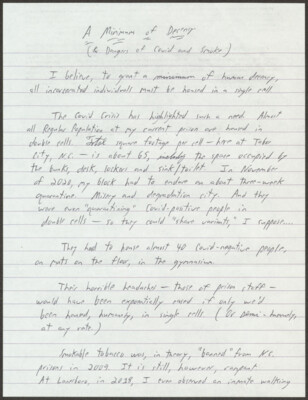 A Minimum of Decency
(& Dangers of Covid and Smoke)
I believe, to grant a minimum of human decency,
all incarcerated individuals must be housed in a single cell.
The Covid Crisis has highlighted such a need. Almost
all Regular Population at my current prison are housed in
double cells. Total square footage per cell — here at Tabor
City, N.C. — is about 65, including the space occupied by
the bunks, desk, lockers and sink/toilet. In November
of 2020, my block had to endure an about three-week
quarantine. Misery and degradation city. And they
were even "quarantining" Covid-positive people in
double cells — so they could "share variants," I suppose...
They had to house almost 40 Covid-negative people,
on mats on the floor, in the gymnasium.
Their horrible headaches — those at prison staff —
would have been exponentially eased if only we'd
been housed, humanely, in single cells
at any rate.)
Smokable tobacco was, in theory, "banned" from N.C.
prisons in 2009. It is still, however, rampant.
At Lanesboro, in 2018, I even observed an inmate walking